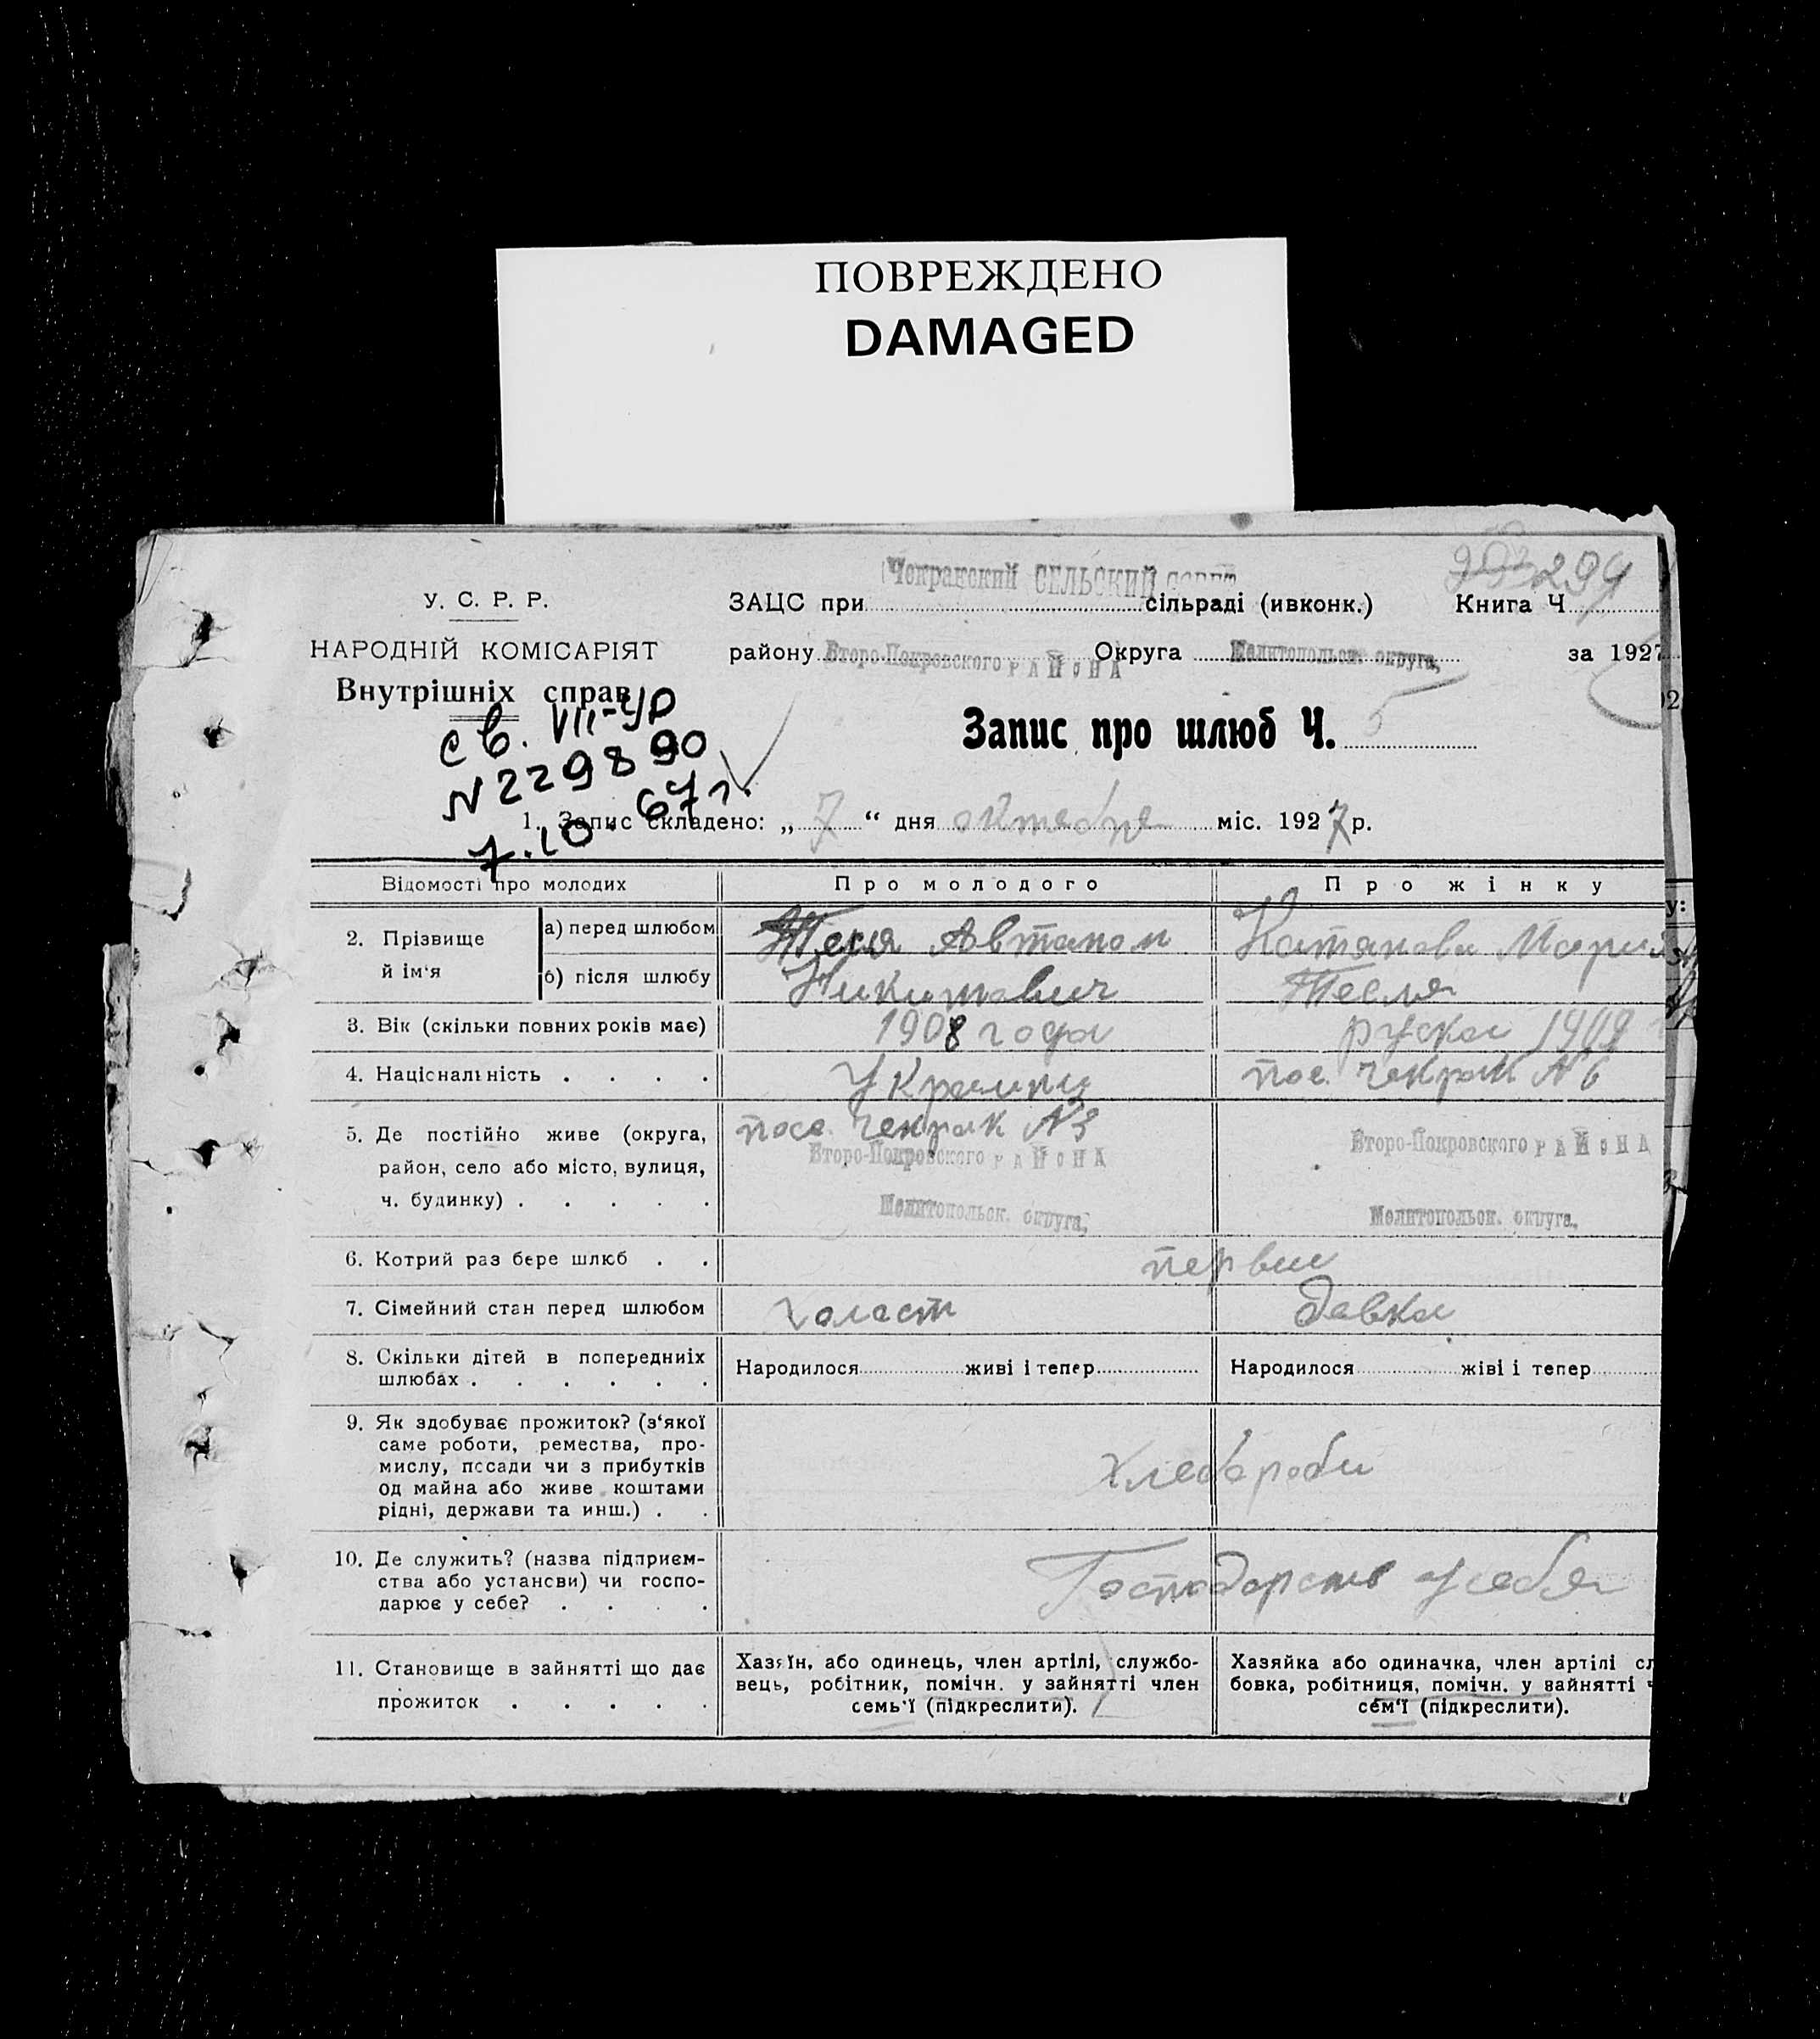 ПОВРЕЖДЕНО
DAMAGED
Чокракский СЕЛЬСКИЙ СОВЕТ
294
У. С. Р. Р.
ЗАЦС при сільраді (ивконк.) Книга Ч
НАРОДНІЙ КОМІСАРІЯТ
району Второ-Покровского РАЙОНА Округа Мелитопольск. округа, за 1927
Внутрішніх справ
св. VII-ЧР
N 229890
7.10. 67 г.
Запис про шлюб Ч. 5
1. Запис складено: „ 7 “ дня октебря міс. 1927 р.
Відомості про молодих Про молодого Про жінку
2. Прізвище й ім‘я
а) перед шлюбом Тесля Автаном Катанова Мария
б) після шлюбу Никитович Тесля
3. Вік (скільки повних років має) 1908 года руска 1909
4. Національність . . . . Украинц пос. Чекрак N 6
5. Де постійно живе (округа, посе. Чекрак N3
район, село або місто, вулиця, Второ-Покровского РАЙОНА Второ-Покровского РАЙОНА
ч. будинку) . . . . . Мелитопольск. округа, Мелитопольск. округа,
6. Котрий раз бере шлюб . . перви
7. Сімейний стан перед шлюбом холаст девка
8. Скільки дітей в попередниіх
шлюбах . . . . . . Народилося живі і тепер Народилося жіві і тепер
9. Як здобуває прожиток? (з‘якої
саме роботи, ремества, про-
мислу, посади чи з прибутків
од майна або живе коштами
рідні, держави та инш.) . .
Хлебароби
10. Де служить? (назва підприєм-
ства або установи) чи госпо-
дарює у себе? . . . .
Господарство у себя
11. Становище в зайнятті що дає
прожиток . . . . .
Хазяїн, або одинець, член артілі, службо-
вець, робітник, помічн. у зайнятті член
семь‘ї (підкреслити).
Хазяйка або одиначка, член артілі сл
бовка, робітниця, помічн. у вайнятті ч
сем‘ї (підкреслити).